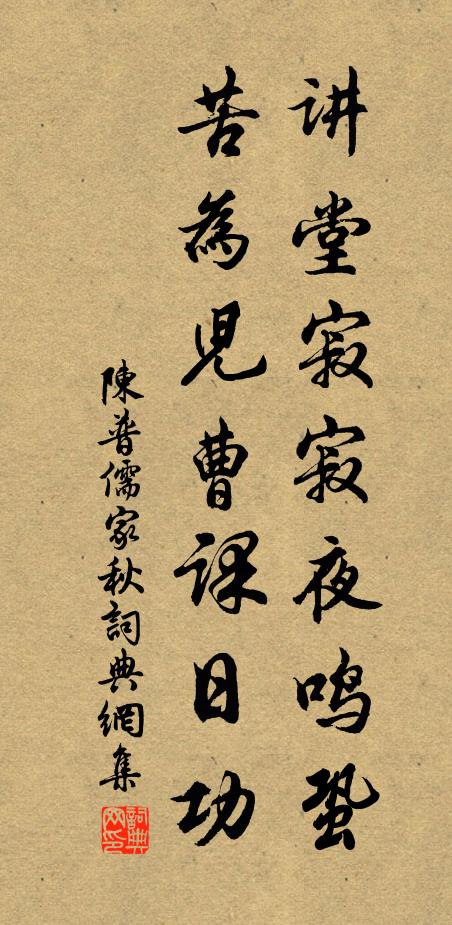 讲堂寂寂夜鸣蛩
苦為児曹课日功
陳普儒家秋詞典網集
詞典网印